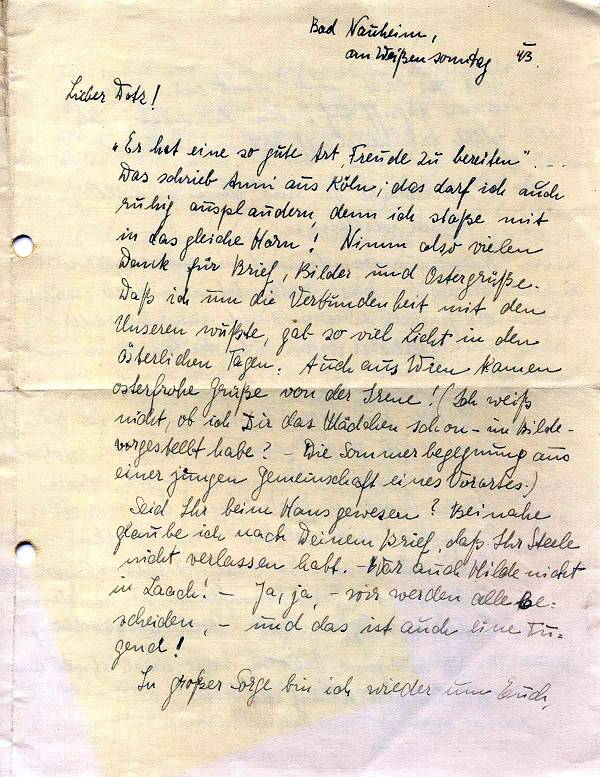 Bad Nauheim,
am Weißensonntag 43.
Lieber Dotz!
"Er hat eine so gute Art, Freude zu bereiten"...
Das schrieb Anni aus Köln; das darf ich auch
ruhig ausplaudern, denn ich stoße mit
in das gleiche Horn! Nimm also vielen
Dank für Brief, Bilder und Ostergrüße.
Daß ich um die Verbundenheit mit den
Unseren wußte, gab so viel Licht in den
österlichen Tagen. Auch aus Wien kamen
osterfrohe Grüße von der Irene! (Ich weiß
nicht, ob ich Dir das Mädchen schon - im Bilde -
vorgestellt habe? - Die Sommerbegegnung aus
einer jungen Gemeinschaft eines Vorortes.)
Seid Ihr beim Hans gewesen? Beinahe
glaube ich nach Deinem Brief, daß Ihr Steele
nicht verlassen habt. - War auch Hilde nicht
in Laach! - Ja, ja, - wir werden alle be-
scheiden, - und das ist auch eine Tu-
gend!
In großer Sorge bin ich wieder um Euch,